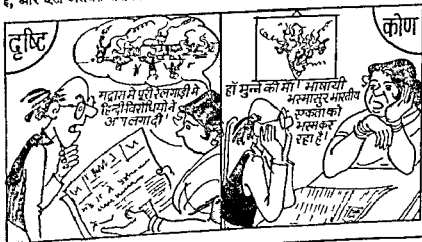 दृष्टि
मद्रास में पूरी रेलगाड़ी में
हिन्दी विरोधियों ने
आग लगा दी!
कोण
हाँ मुन्ने की माँ! भाषायी
भस्मासुर भारतीय
एकता को
भस्म कर
रहा है!